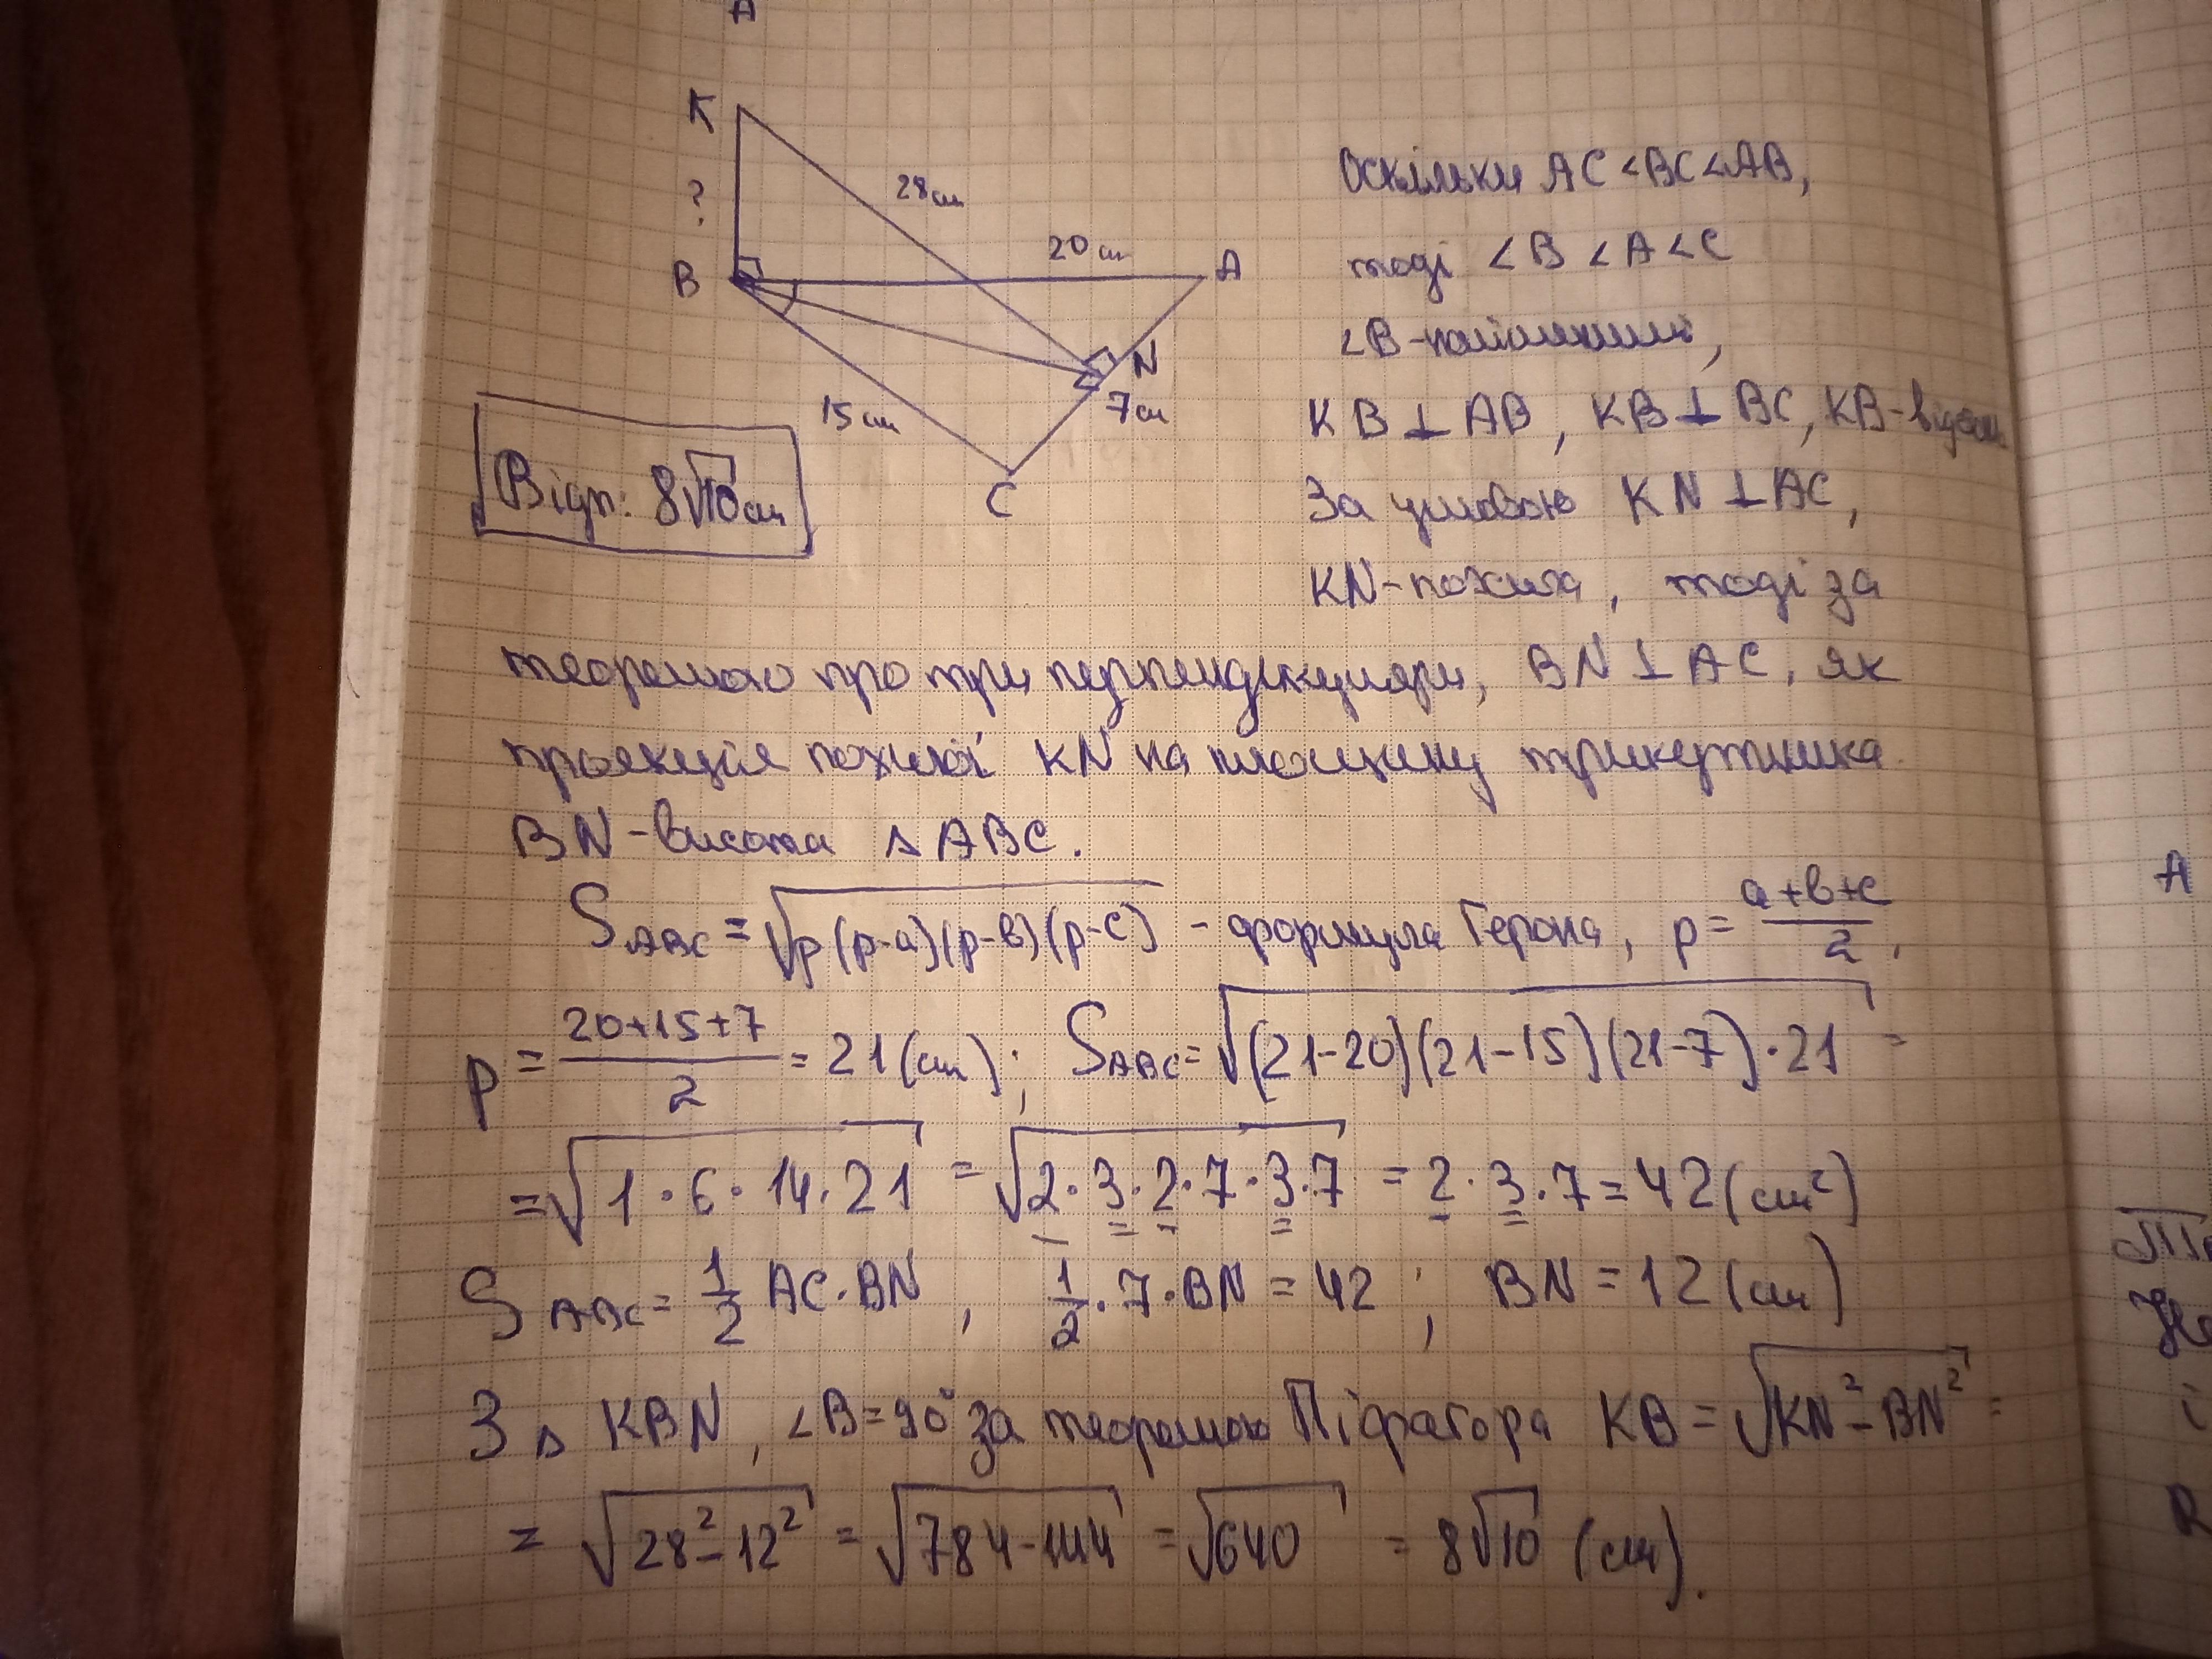 A
K
28см
?
20см
B
A
N
7см
15см
C
Відп: 8√10 см
Оскільки AC<BC<AB,
тоді ∠B<A<C
∠B-найменший,
KB⊥AB, KB⊥BC, KB-
За умовою KN⊥AC,
KN-похила, тоді за
теоремою про три перпендікуляри, BN⊥AC, як
проекція похилої KN на площину трикутника.
BN-висота △ABC.
S ABC = √p(p-a)(p-b)(p-c) - формула Герона, p= a+b+c / 2,
p= 20+15+7 / 2 = 21(см); S ABC = √(21-20)(21-15)(21-7)·21 =
= √1·6·14·21 = √2·3·2·7·3·7 = 2·3·7=42(см²)
S ABC = 1/2 AC·BN, 1/2·7·BN=42; BN=12(см)
З △KBN, ∠B=90° за теоремою Піфагора KB=√KN²-BN² =
= √28²-12² = √784-144 = √640 = 8√10 (см).
A
Не
і
R